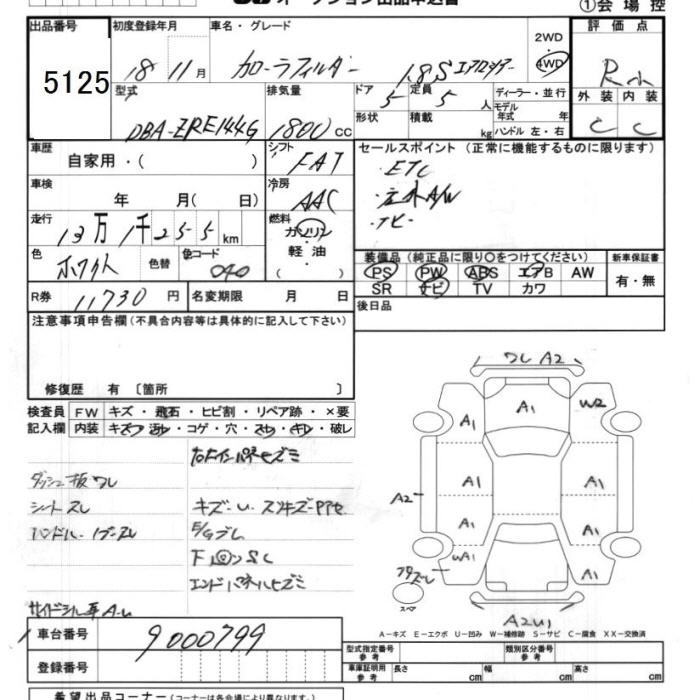 オークション出品申込書
①会場控
出品番号 5125
初度登録年月 18 11月
車名・グレード カローラフィルダー 1.8S エアロツアラー
2WD
4WD
評価点
R
外装 内装
C C
型式 DBA-ZRE144G
排気量 1800 cc
ドア 5
定員 5 人
ディーラー・並行
形状
積載 kg
モデル年式 年
ハンドル 左・右
車歴 自家用・( )
シフト FAT
セールスポイント (正常に機能するものに限ります)
・ETC
・ナビ
車検 年 月( 日)
冷房 AAC
走行 13万1千255km
燃料 ガソリン・軽油
色 ホワイト 色替
色コード 040
装備品 (純正品に限り○をつけてください)
新車保証書
PS PW ABS エアB AW
SR ナビ TV カワ
有・無
R券 11730 円
名変期限 月 日
後日品
注意事項申告欄 (不具合内容等は具体的に記入して下さい)
修復歴 有 〔箇所 〕
検査員記入欄
FW キズ・飛石・ヒビ割・リペア跡・×要
内装 キズ・汚れ・コゲ・穴・スレ・キレ・破レ
ダッシュ板ワレ
シートスレ
ハンドル・ノブスレ
E/Gブレ
エンドパネルヒズミ
ワレ A2
A1
A1
W2
A1
A1
A2
A1
A1
WA1
A1
スペア
A2U1
A-キズ E-エクボ U-凹み W-補修跡 S-サビ C-腐食 XX-交換済
車台番号 9000799
登録番号
型式指定番号 参考
類別区分番号 参考
車庫証明用 参考 長さ cm 幅 cm 高さ cm
希望出品コーナー (コーナーは各会場により異なります。)